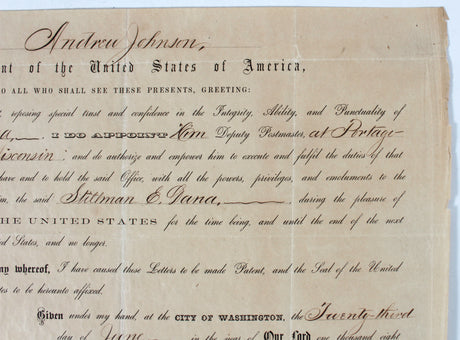 Andrew Johnson,
nt of the United States of America,
O ALL WHO SHALL SEE THESE PRESENTS, GREETING:
reposing special trust and confidence in the Integrity, Ability, and Punctuality of
a, I DO APPOINT Him Deputy Postmaster, at Portage
isconsin; and do authorize and empower him to execute and fulfil the duties of that
have and to hold the said Office, with all the powers, privileges, and emoluments to the
m, the said Stillman E. Dana, during the pleasure of
HE UNITED STATES for the time being, and until the end of the next
ed States, and no longer.
ny whereof, I have caused these Letters to be made Patent, and the Seal of the United
tes to be hereunto affixed.
Given under my hand, at the CITY OF WASHINGTON, the Twenty-third
day of June in the year of Our Lord one thousand eight